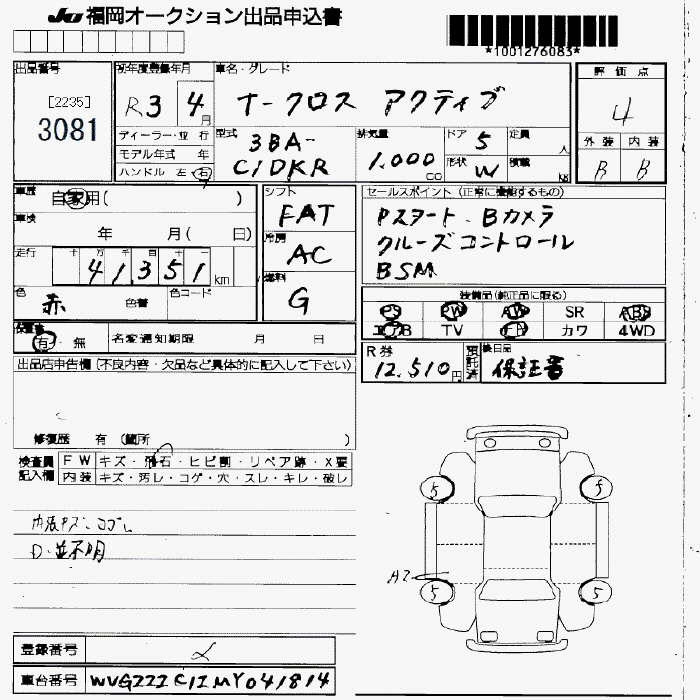 JU 福岡オークション出品申込書
*1001276083*
出品番号
[2235]
3081
初年度登録年月
R3 4月
ディーラー・並行
モデル年式 年
ハンドル 左 右
車名・グレード
T-クロス アクティブ
型式 3BA-C1DKR
排気量 1,000 CC
ドア 5
形状 W
定員 人
積載 KG
評価点
4
外装 内装
B B
車歴 自家用( )
車検 年 月( 日)
走行 十 万 千 百 十 一
41,351 km
色 赤 色替
色コード
シフト
FAT
冷房
AC
燃料
G
セールスポイント (正常に機能するもの)
Pスタート・Bカメラ
クルーズコントロール
BSM
装備品(純正品に限る)
PS PW AW SR ABS
エアB TV ナビ カワ 4WD
保証書
有・無
名変通知期限 月 日
R券
12,510円
預託済
後日品
保証書
出品店申告欄(不良内容・欠品など具体的に記入して下さい)
修復歴 有(箇所 )
検査員記入欄
FW キズ・飛石・ヒビ割・リペア跡・X要
内装 キズ・汚レ・コゲ・穴・スレ・キレ・破レ
内張キズ・ヨゴレ
D・並不明
5 5
A2
5 5
登録番号
車台番号 WVGZZZC1ZMY041814